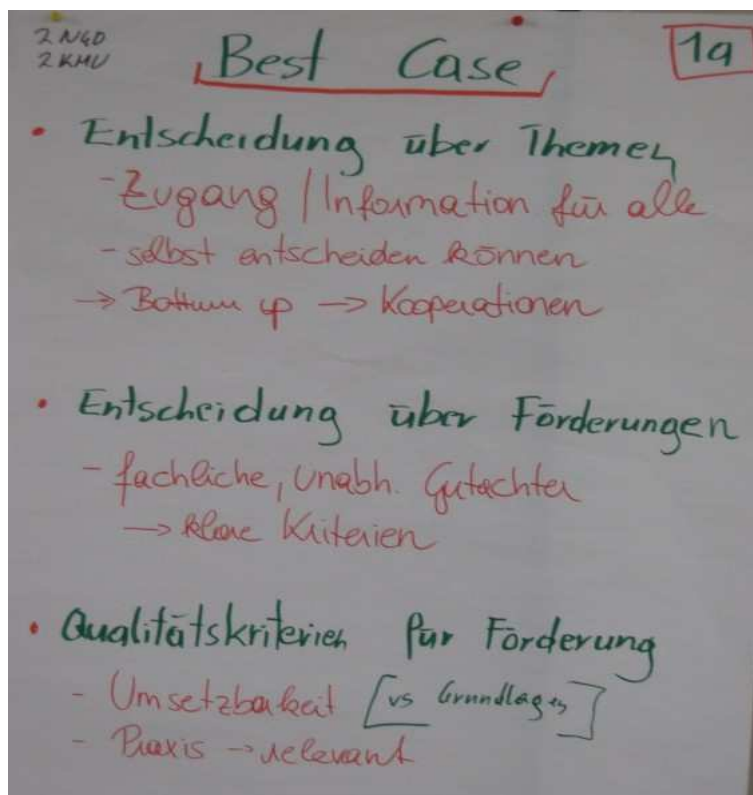 2 NGO
2 KMU
Best Case
1a
• Entscheidung über Themen
- Zugang / Information für alle
- selbst entscheiden können
→ Bottum up → Kooperationen
• Entscheidung über Förderungen
- fachliche, unabh. Gutachter
→ klare Kriterien
• Qualitätskriterien für Förderung
- Umsetzbarkeit [vs Grundlagen]
- Praxis → relevant